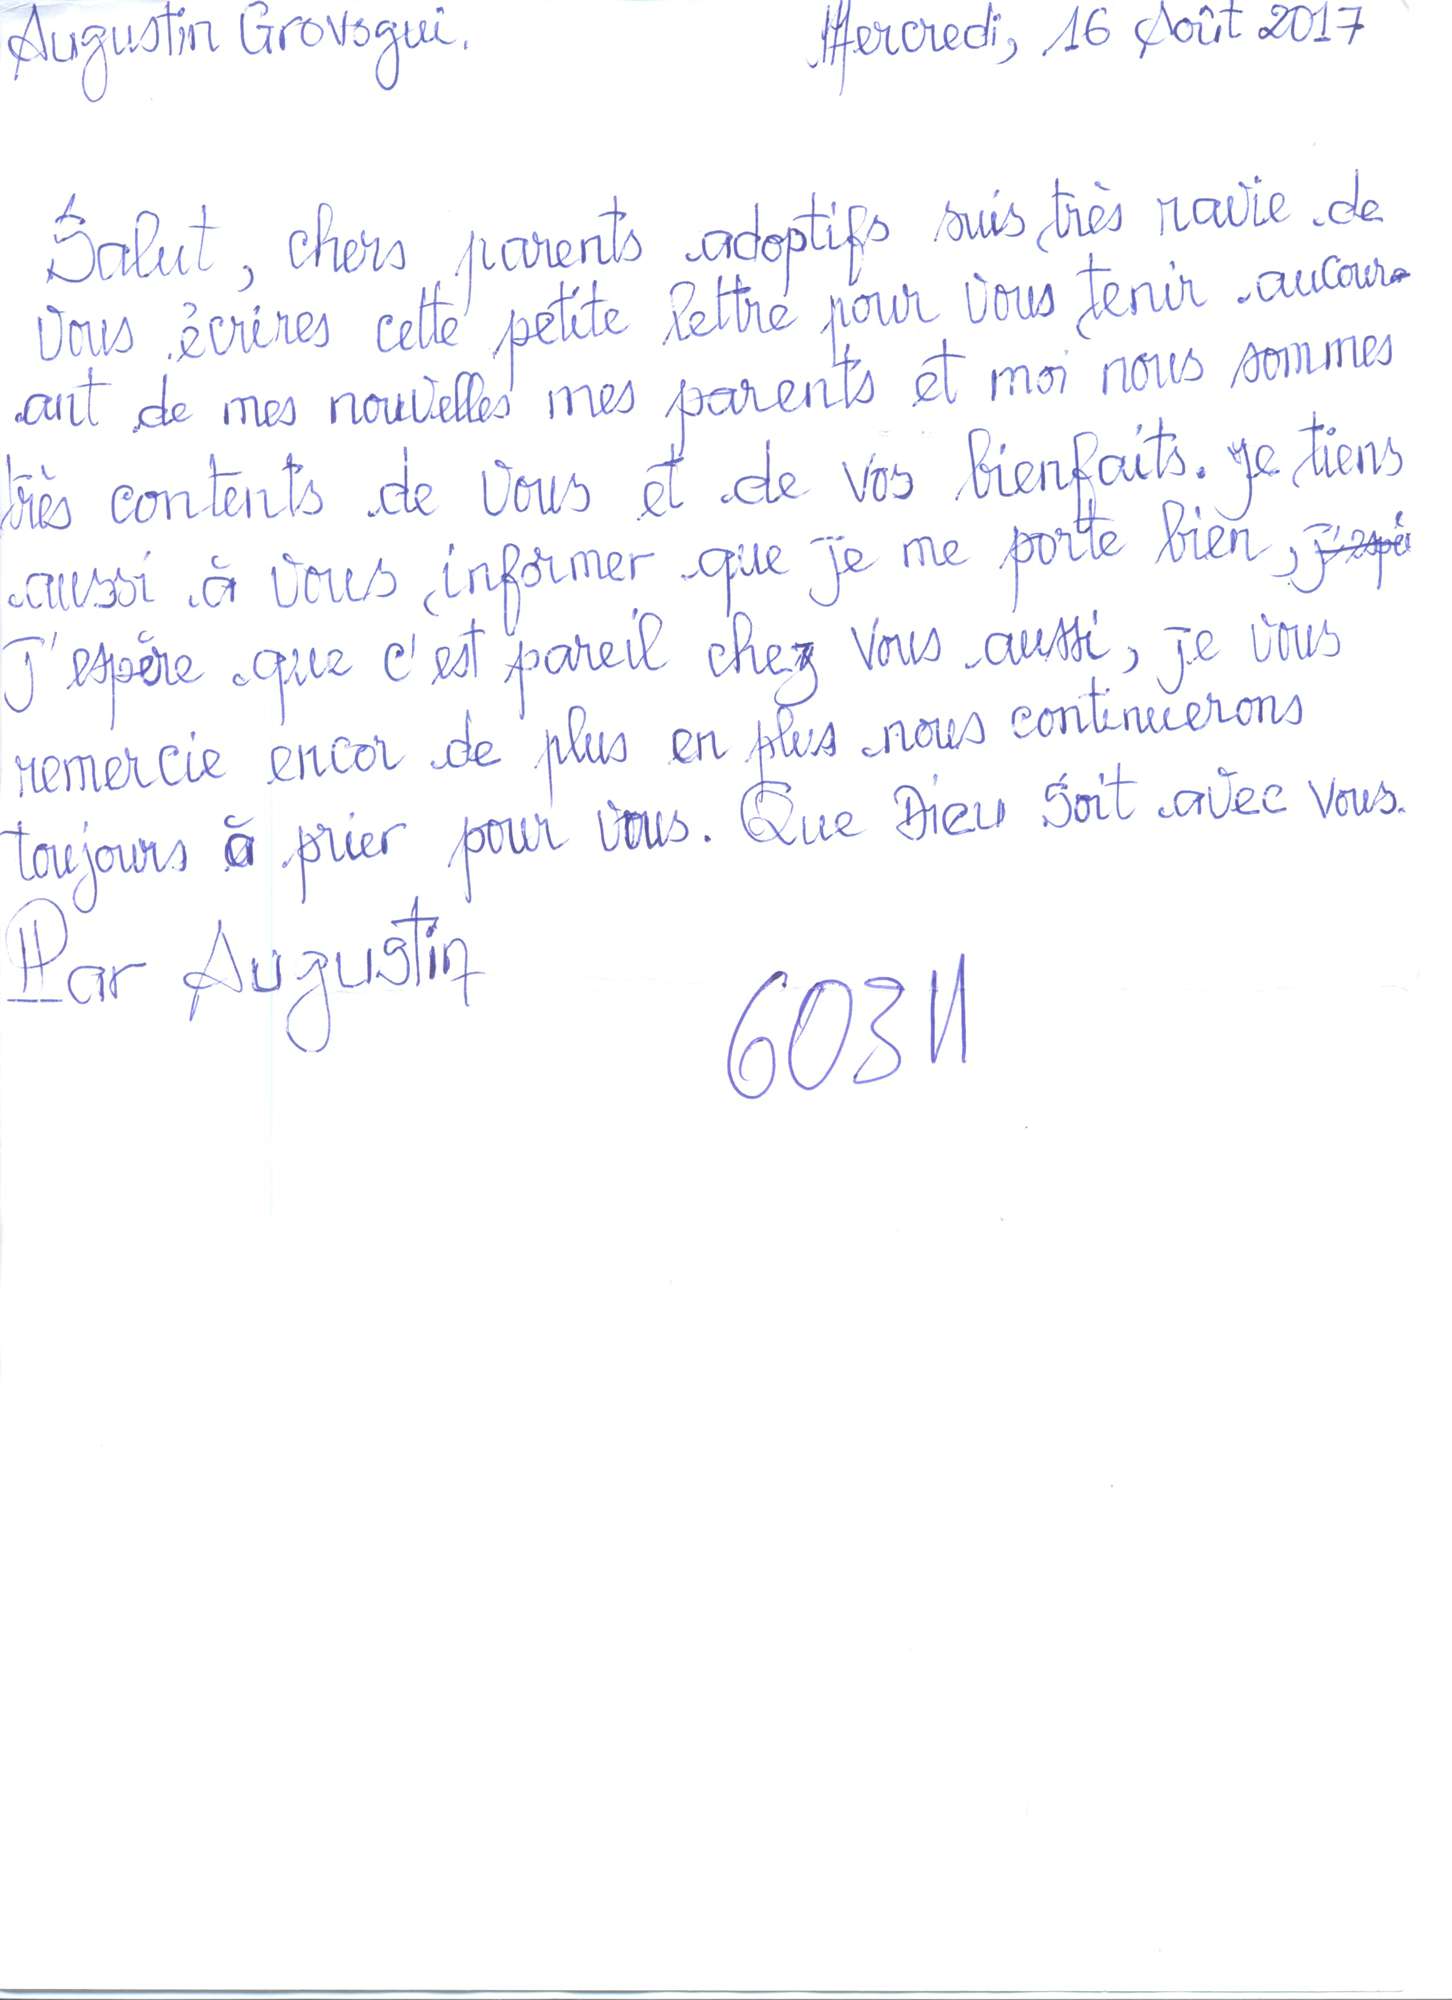 Augustin Grovogui. Mercredi, 16 Août 2017
Salut, chers parents adoptifs suis très ravie de
vous écrires cette petite lettre pour vous tenir aucour-
ant de mes nouvelles mes parents et moi nous sommes
très contents de vous et de vos bienfaits. Je tiens
aussi à vous informer que je me porte bien, j'espè
J'espère que c'est pareil chez vous aussi, je vous
remercie encor de plus en plus nous continuerons
toujours à prier pour vous. Que Dieu Soit avec vous.
Par Augustin
60311